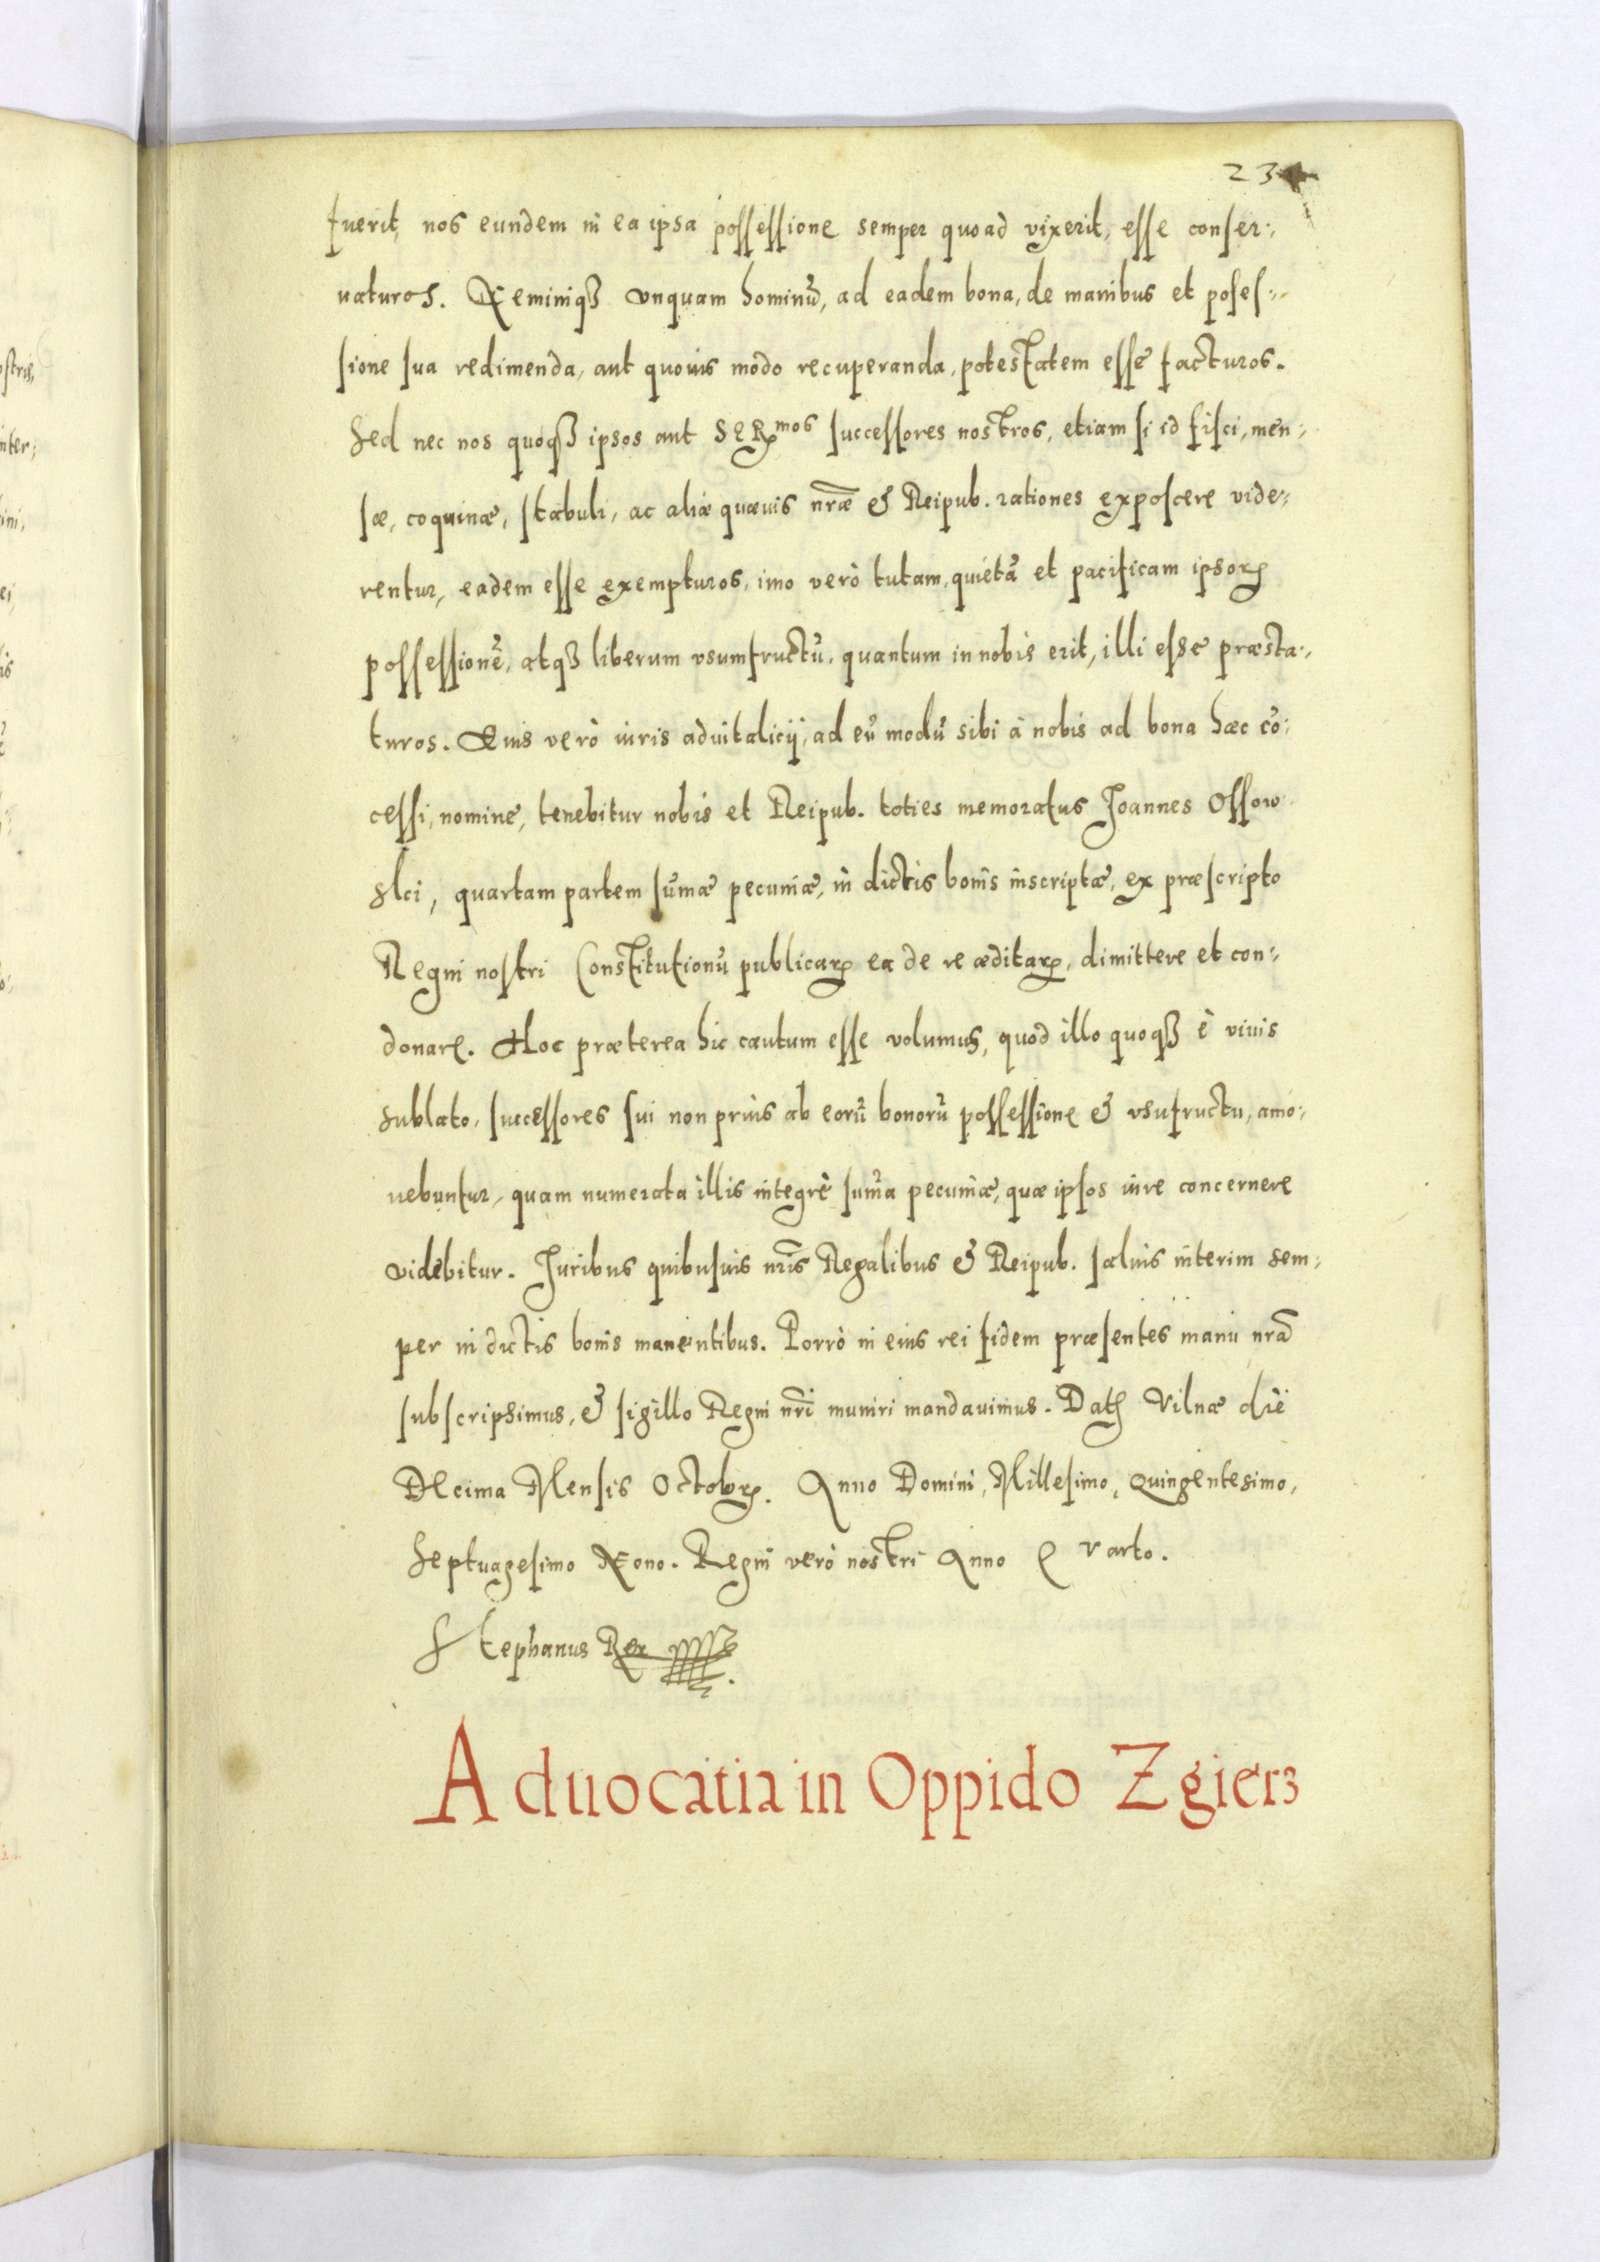 23
fuerit, nos eundem in ea ipsa possessione semper quoad vixerit, esse conser-
uaturos. Neminiqꝫ vnquam hominũ, ad eadem bona, de manibus et poses-
sione sua redimenda, aut quouis modo recuperanda, potestatem esse facturos.
Sed nec nos quoqꝫ ipsos aut Serᵐᵒˢ successores nostros, etiam si id fisci, men-
sæ, coquinæ, stabuli, ac aliæ quæuis nræ & Reipub. rationes exposcere vide-
rentur, eadem esse exempturos, imo verò tutam, quietã et pacificam ipsoꝝ
possessionẽ, atqꝫ liberum vsumfructũ, quantum in nobis erit, illi esse præsta-
turos. Cuius verò iuris aduitalicij, ad eũ modũ sibi à nobis ad bona hæc cõ-
cessi, nomine, tenebitur nobis et Reipub. toties memoratus Joannes Ossow-
ski, quartam partem sũmæ pecuniæ, in dictis bonis inscriptæ, ex præscripto
Regni nostri Constitutionũ publicaꝝ ea de re æditaꝝ, dimittere et con-
donare. Hoc præterea hic cautum esse volumus, quod illo quoqꝫ è viuis
sublato, successores sui non prius ab eorũ bonorũ possessione & vsufructu, amo-
uebuntur, quam numerata illis integrè sum̃a pecuniæ, quæ ipsos iure concernere
videbitur. Juribus quibusuis nris Regalibus & Reipub. saluis interim sem-
per in dictis bonis manentibus. Porrò in eius rei fidem præsentes manu nrã
subscripsimus, & sigillo Regni nri muniri mandauimus. Datꝭ Vilnæ die
Decima Mensis Octobꝝ. Anno Domini, Millesimo, Quingentesimo,
Septuagesimo Nono. Regni verò nostri Anno Qvarto.
Stephanus Rex
Aduocatia in Oppido Zgierz